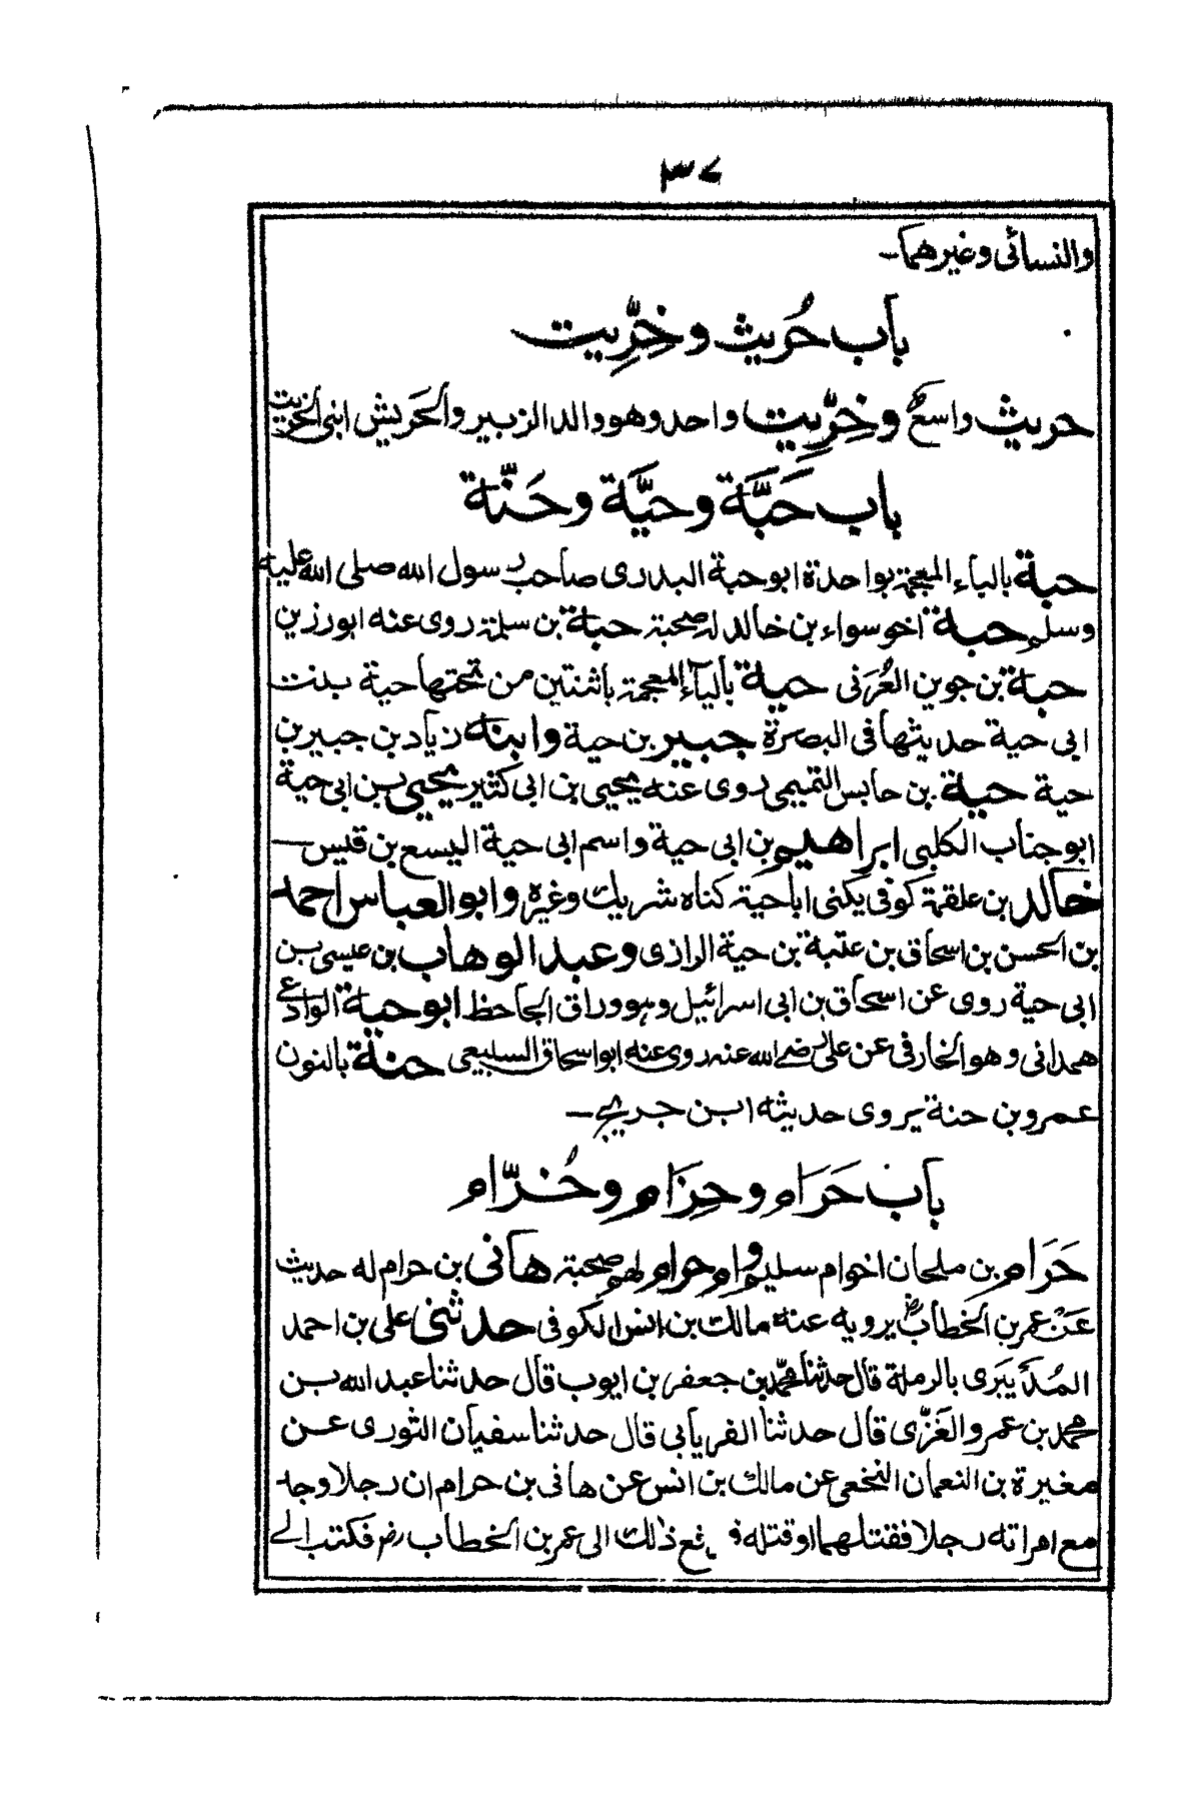 ٣٧
والنسائى وغيرهما—
باب حُريث وخِرِّيت
حريث واسعٌ وخِرِّيت واحد وهو والد الزبير والحَريش ابنى الخريت
باب حَبَّة وحيَّة وحَنَّة
حبة بالباء المعجمة بواحدة ابو حبة البدرى صاحب رسول الله صلى الله عليه
وسلم حبة اخو سواء بن خالد له صحبة حبة بن سلمة روى عنه ابو رزين
حبة بن جوين العُرَنى حية بالياء المعجمة باثنتين من تحتها حية بنت
ابى حية حديثها فى البصرة جبير بن حية وابنه زياد بن جبير بن
حية حية بن حابس التميمى روى عنه يحيى بن ابى كثير يحيى بن ابى حية
ابو جناب الكلبى ابراهيم بن ابى حية واسم ابى حية اليسع بن قيس—
خالد بن علقمة كوفى يكنى ابا حية كناه شريك وغيره وابو العباس احمد
بن الحسن بن اسحاق بن عتبة بن حية الرازى وعبد الوهاب بن عيسى بن
ابى حية روى عن اسحاق بن ابى اسرائيل وهو وراق الجاحظ ابو حية الوادعى
همدانى وهو الخارفى عن على رضى الله عنه روى عنه ابو اسحاق السبيعى حنة بالنون
عمرو بن حنة يروى حديثه ابن جريج—
باب حَرَام وحِزَام وخُرَّام
حَرَام بن ملحان اخو ام سليم وام حرام لهم صحبة هانى بن حرام له حديث
عَنْ عمر بن الخطابؓ يرويه عنه مالك بن انس الكوفى حدثنى على بن احمد
المُدَيبَرى بالرملة قال حدثنا محمّد بن جعفر بن ايوب قال حدثنا عبد الله بن
محمد بن عمرو الغَزّى قال حدثنا الفريابى قال حدثنا سفيان الثورى عن
مغيرة بن النعمان النخعى عن مالك بن انس عن هانى بن حرام ان رجلا وجد
مع امراته رجلا فقتلهما او قتله ذلك الى عمر بن الخطاب رضه فكتب الى